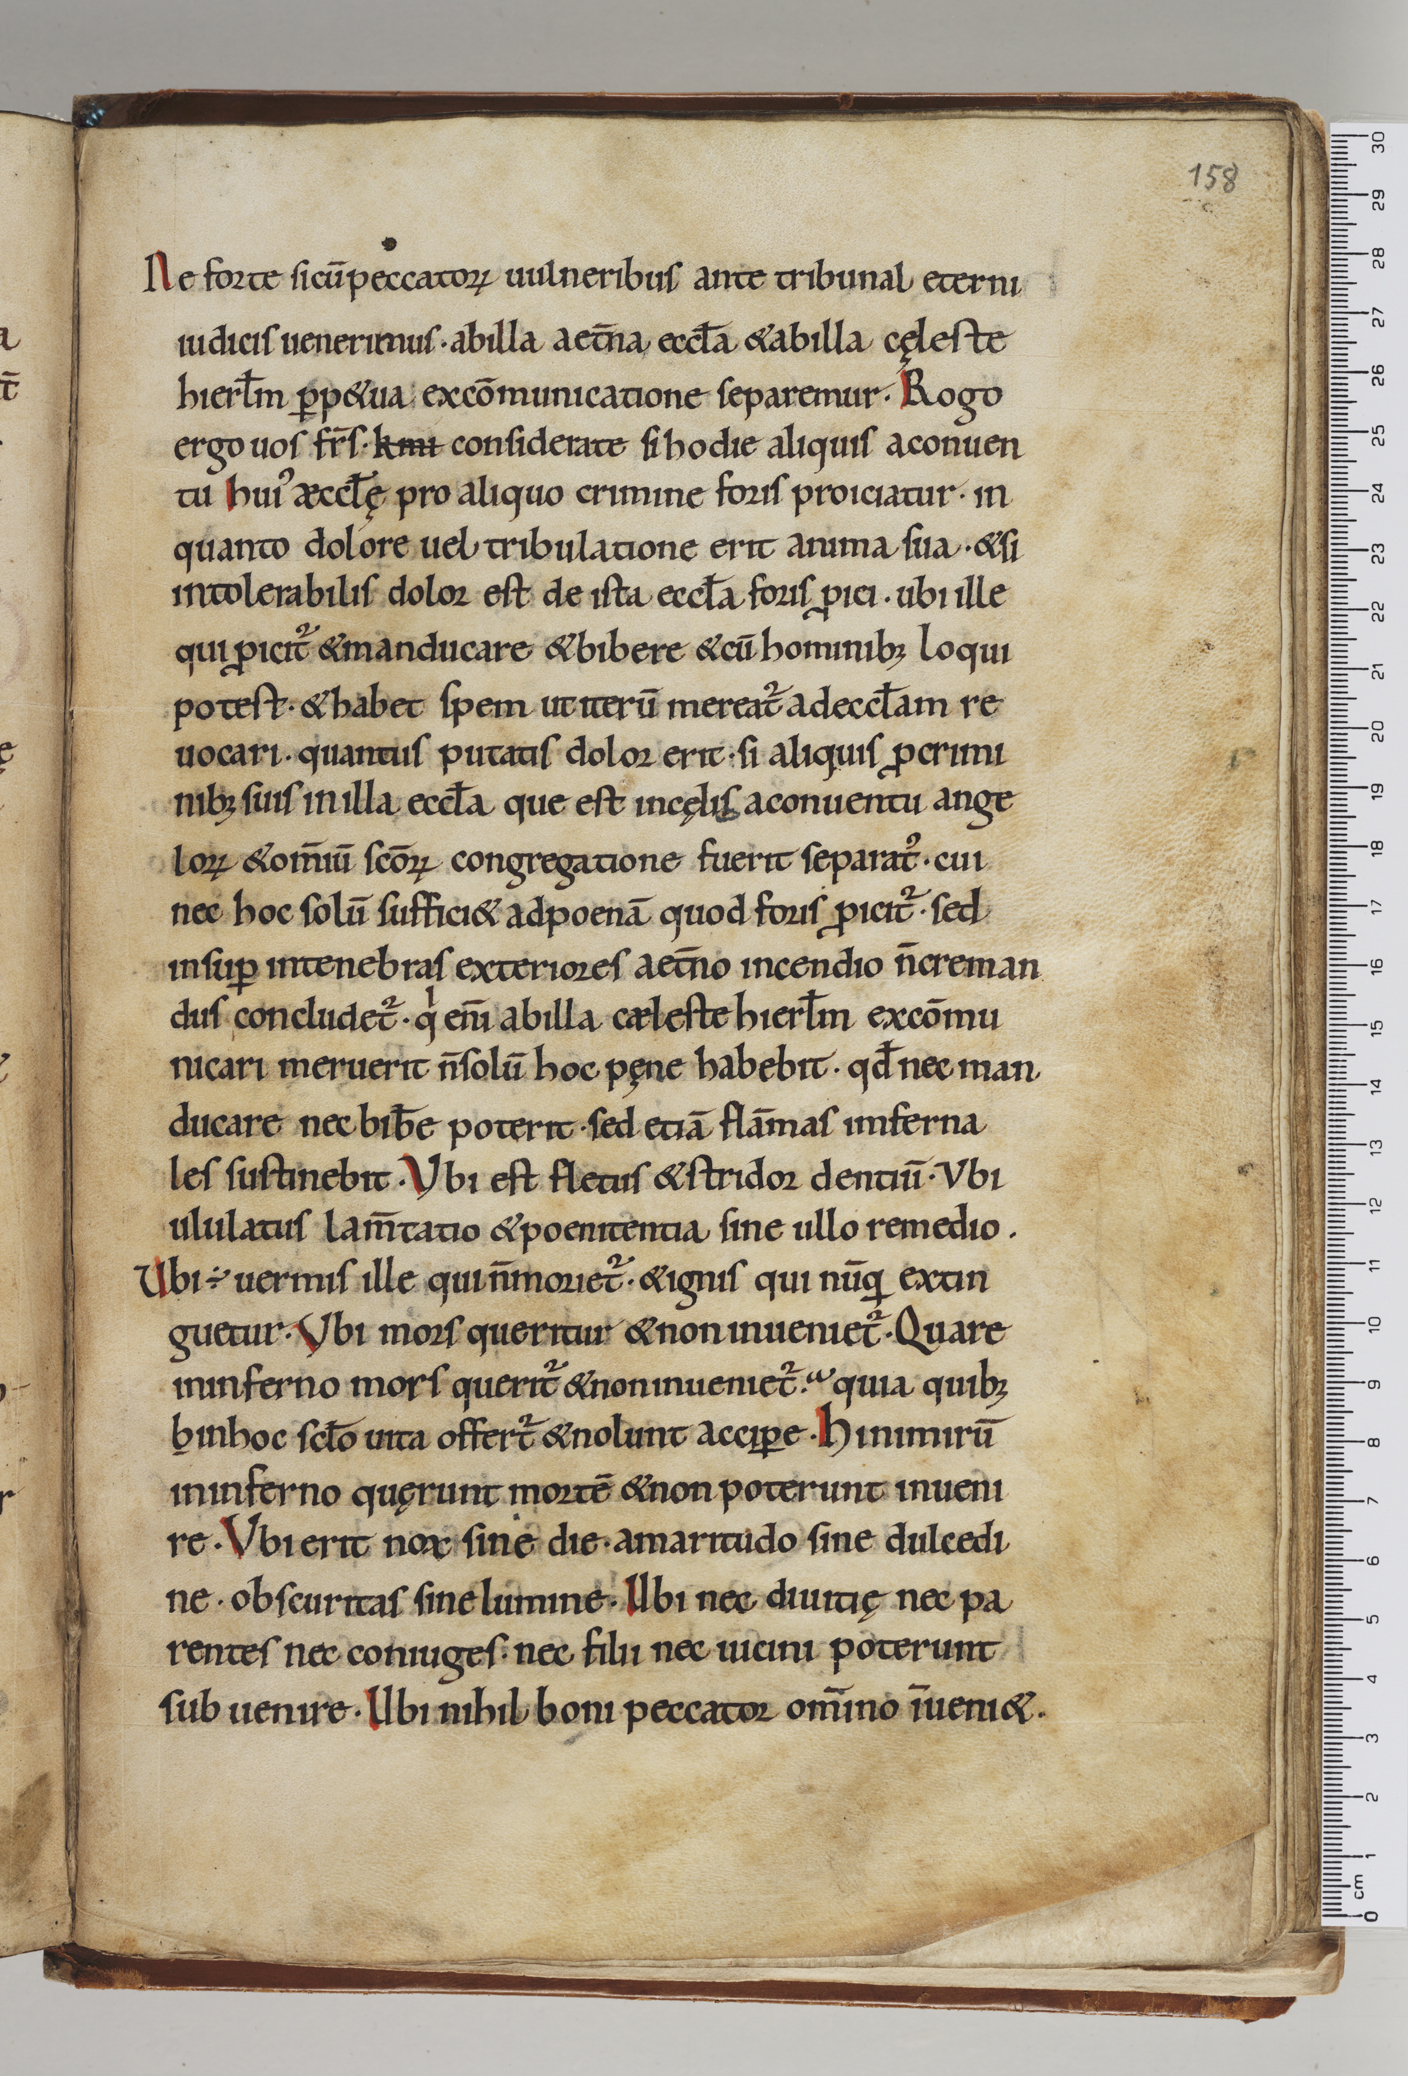 158
Ne forte si cū peccatoꝝ uulneribus ante tribunal eterni
iudicis uenerimus · ab illa aet̄na eccl̄a & ab illa cęleste
hierl̄m ꝑp&ua excōmunicatione separemur · Rogo
ergo uos fr̄s · kmi considerate si hodie aliquis a conuen
tu hui᾽ æccl̄ę pro aliquo crimine foris proiciatur · in
quanto dolore uel tribulatione erit anima sua · & si
intolerabilis dolor est de ista eccl̄a foris ꝓici · ubi ille
qui ꝓicit᷑ & manducare & bibere & cū hominibꝫ loqui
potest · & habet spem ut iterū mereat᷑ ad eccl̄am re
uocari · quantus putatis dolor erit · si aliquis ꝓ crimi
nibꝫ suis in illa eccl̄a que est in cęlis a conuentu ange
loꝝ & om̄iū sc̄oꝝ congregatione fuerit separat᾽ · cui
nec hoc solū suffici& ad poenā quod foris ꝓicit᷑ · sed
insuꝑ in tenebras exteriores aet̄no incendio n̄ creman
dus concludet᷑ · qͥ eni̅ ab illa cæleste hierl̄m excōmu
nicari meruerit n̄ solū hoc pęne habebit · qd̄ nec man
ducare nec bib̄e poterit · sed etiā flāmas imferna
les sustinebit · Vbi est fletus & stridor dentiū · Vbi
ululatus lam̄tatio & poenitentia sine ullo remedio ·
Vbi ÷ uermis ille qui n̄ moriet᷑ · & ignis qui nūꝗ extin
guetur · Vbi mors queritur & non inueniet᷑ · Quare
in inferno mors querit᷑ & non inueniet᷑ · quia quibꝫ
h in hoc scl̄o uita offert᷑ & nolunt acciꝑe · Hi nimirū
in inferno quęrunt mortē & non poterunt inueni
re · Vbi erit nox sine die · amaritudo sine dulcedi
ne · obscuritas sine lumine · Ubi nec diuitię nec pa
rentes nec coniuges · nec filii nec uicini poterunt
sub uenire · Ubi nihil boni peccator om̄ino īueni& ·